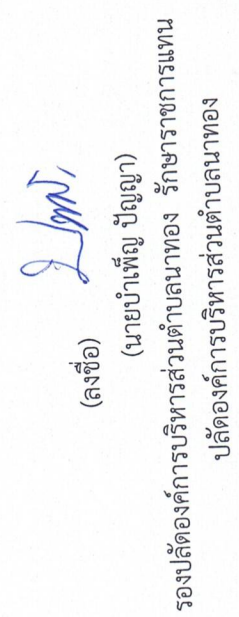 (ลงชื่อ)
(นายบำเพ็ญ ปัญญา)
รองปลัดองค์การบริหารส่วนตำบลนาทอง รักษาราชการแทน
ปลัดองค์การบริหารส่วนตำบลนาทอง